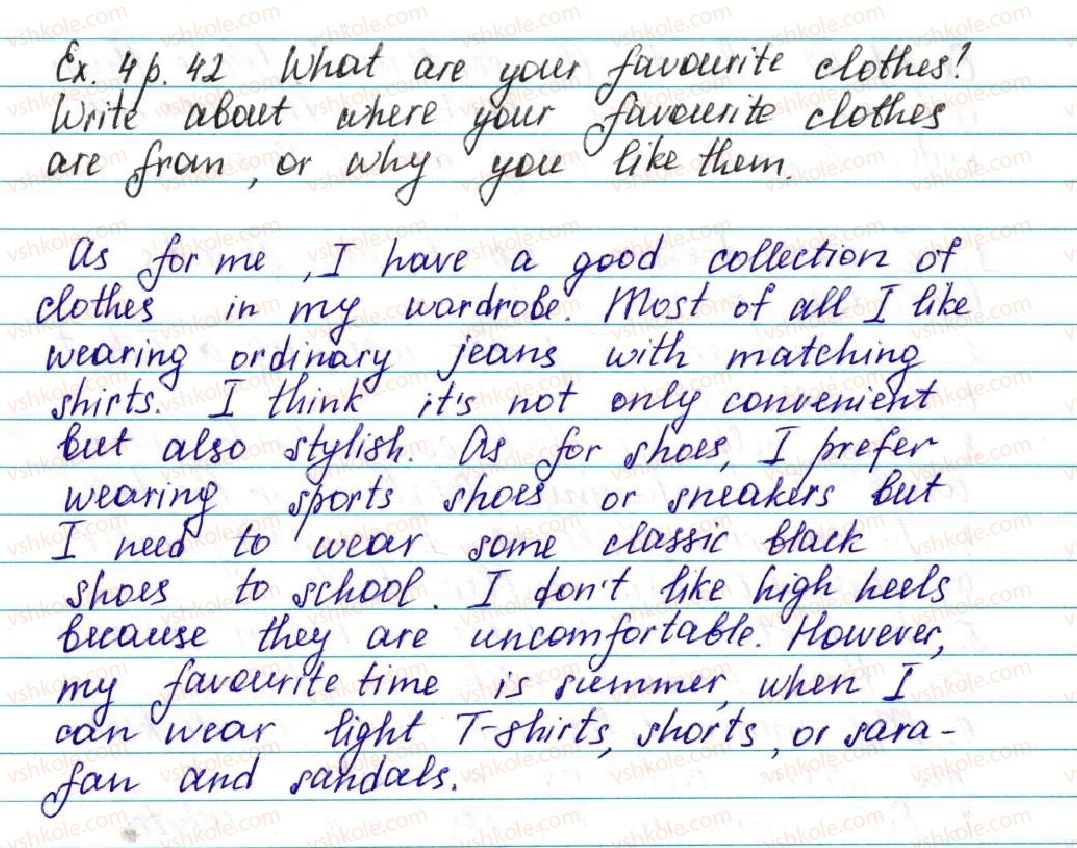 Ex. 4 p. 42 What are your favourite clothes?
Write about where your favourite clothes
are from, or why you like them.
As for me, I have a good collection of
clothes in my wardrobe. Most of all I like
wearing ordinary jeans with matching
shirts. I think it's not only convenient
but also stylish. As for shoes, I prefer
wearing sports shoes or sneakers but
I need to wear some classic black
shoes to school. I don't like high heels
because they are uncomfortable. However,
my favourite time is summer, when I
can wear light T-shirts, shorts, or sara-
fan and sandals.
vshkole.com